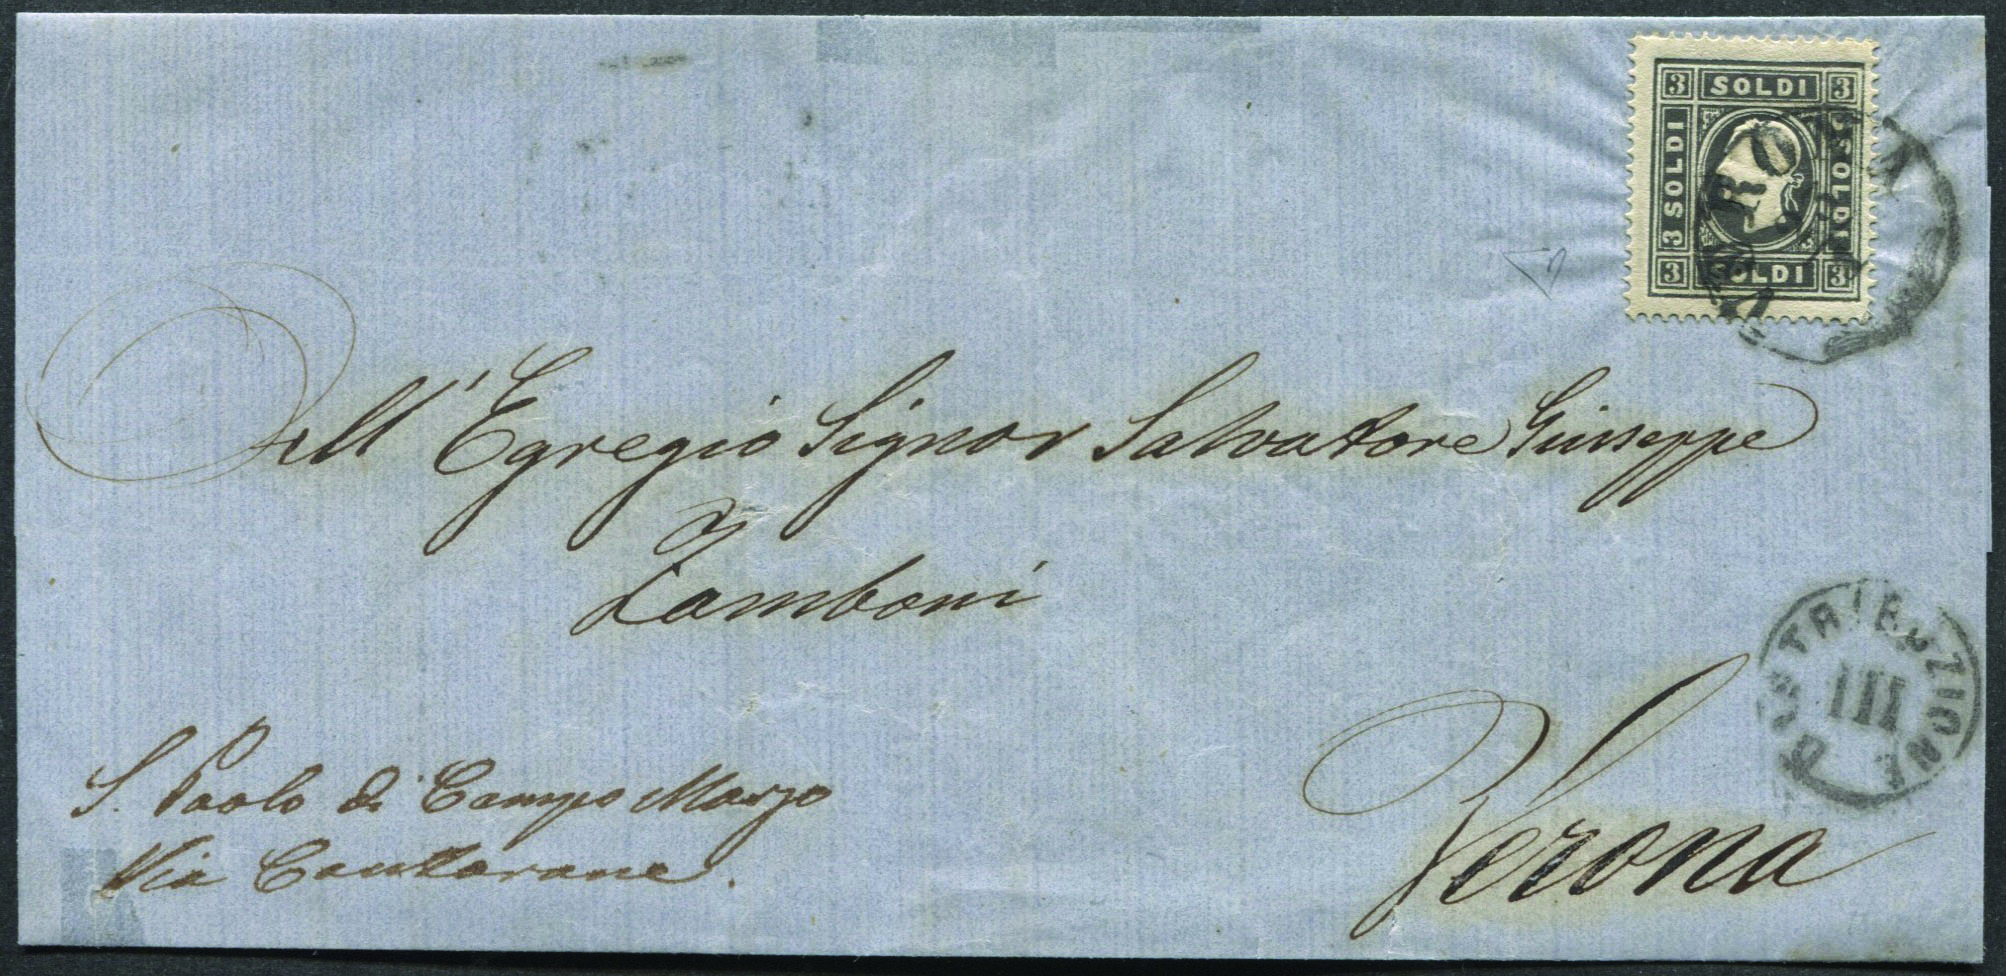 3 SOLDI 3
3 SOLDI
3 SOLDI
3 SOLDI 3
VERONA
All' Egregio Signor Salvatore Giuseppe
Zamboni
DISTRIBUZIONE
III
S. Paolo di Campo Marzo
Via Cantarane.
Verona